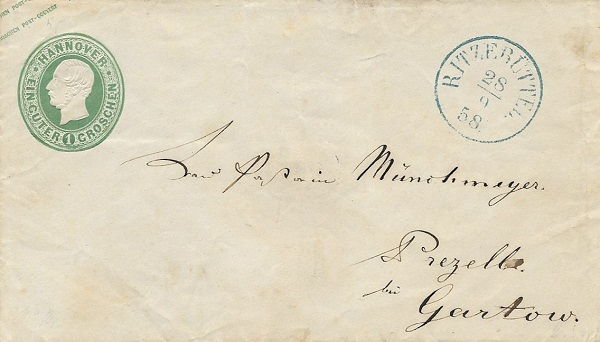 POST-COUVERT
HANNOVER
EIN GUTER GROSCHEN
1
RITZEBÜTTEL
28
9
58.
Münchmeyer.
Prezelle.
bei
Gartow.